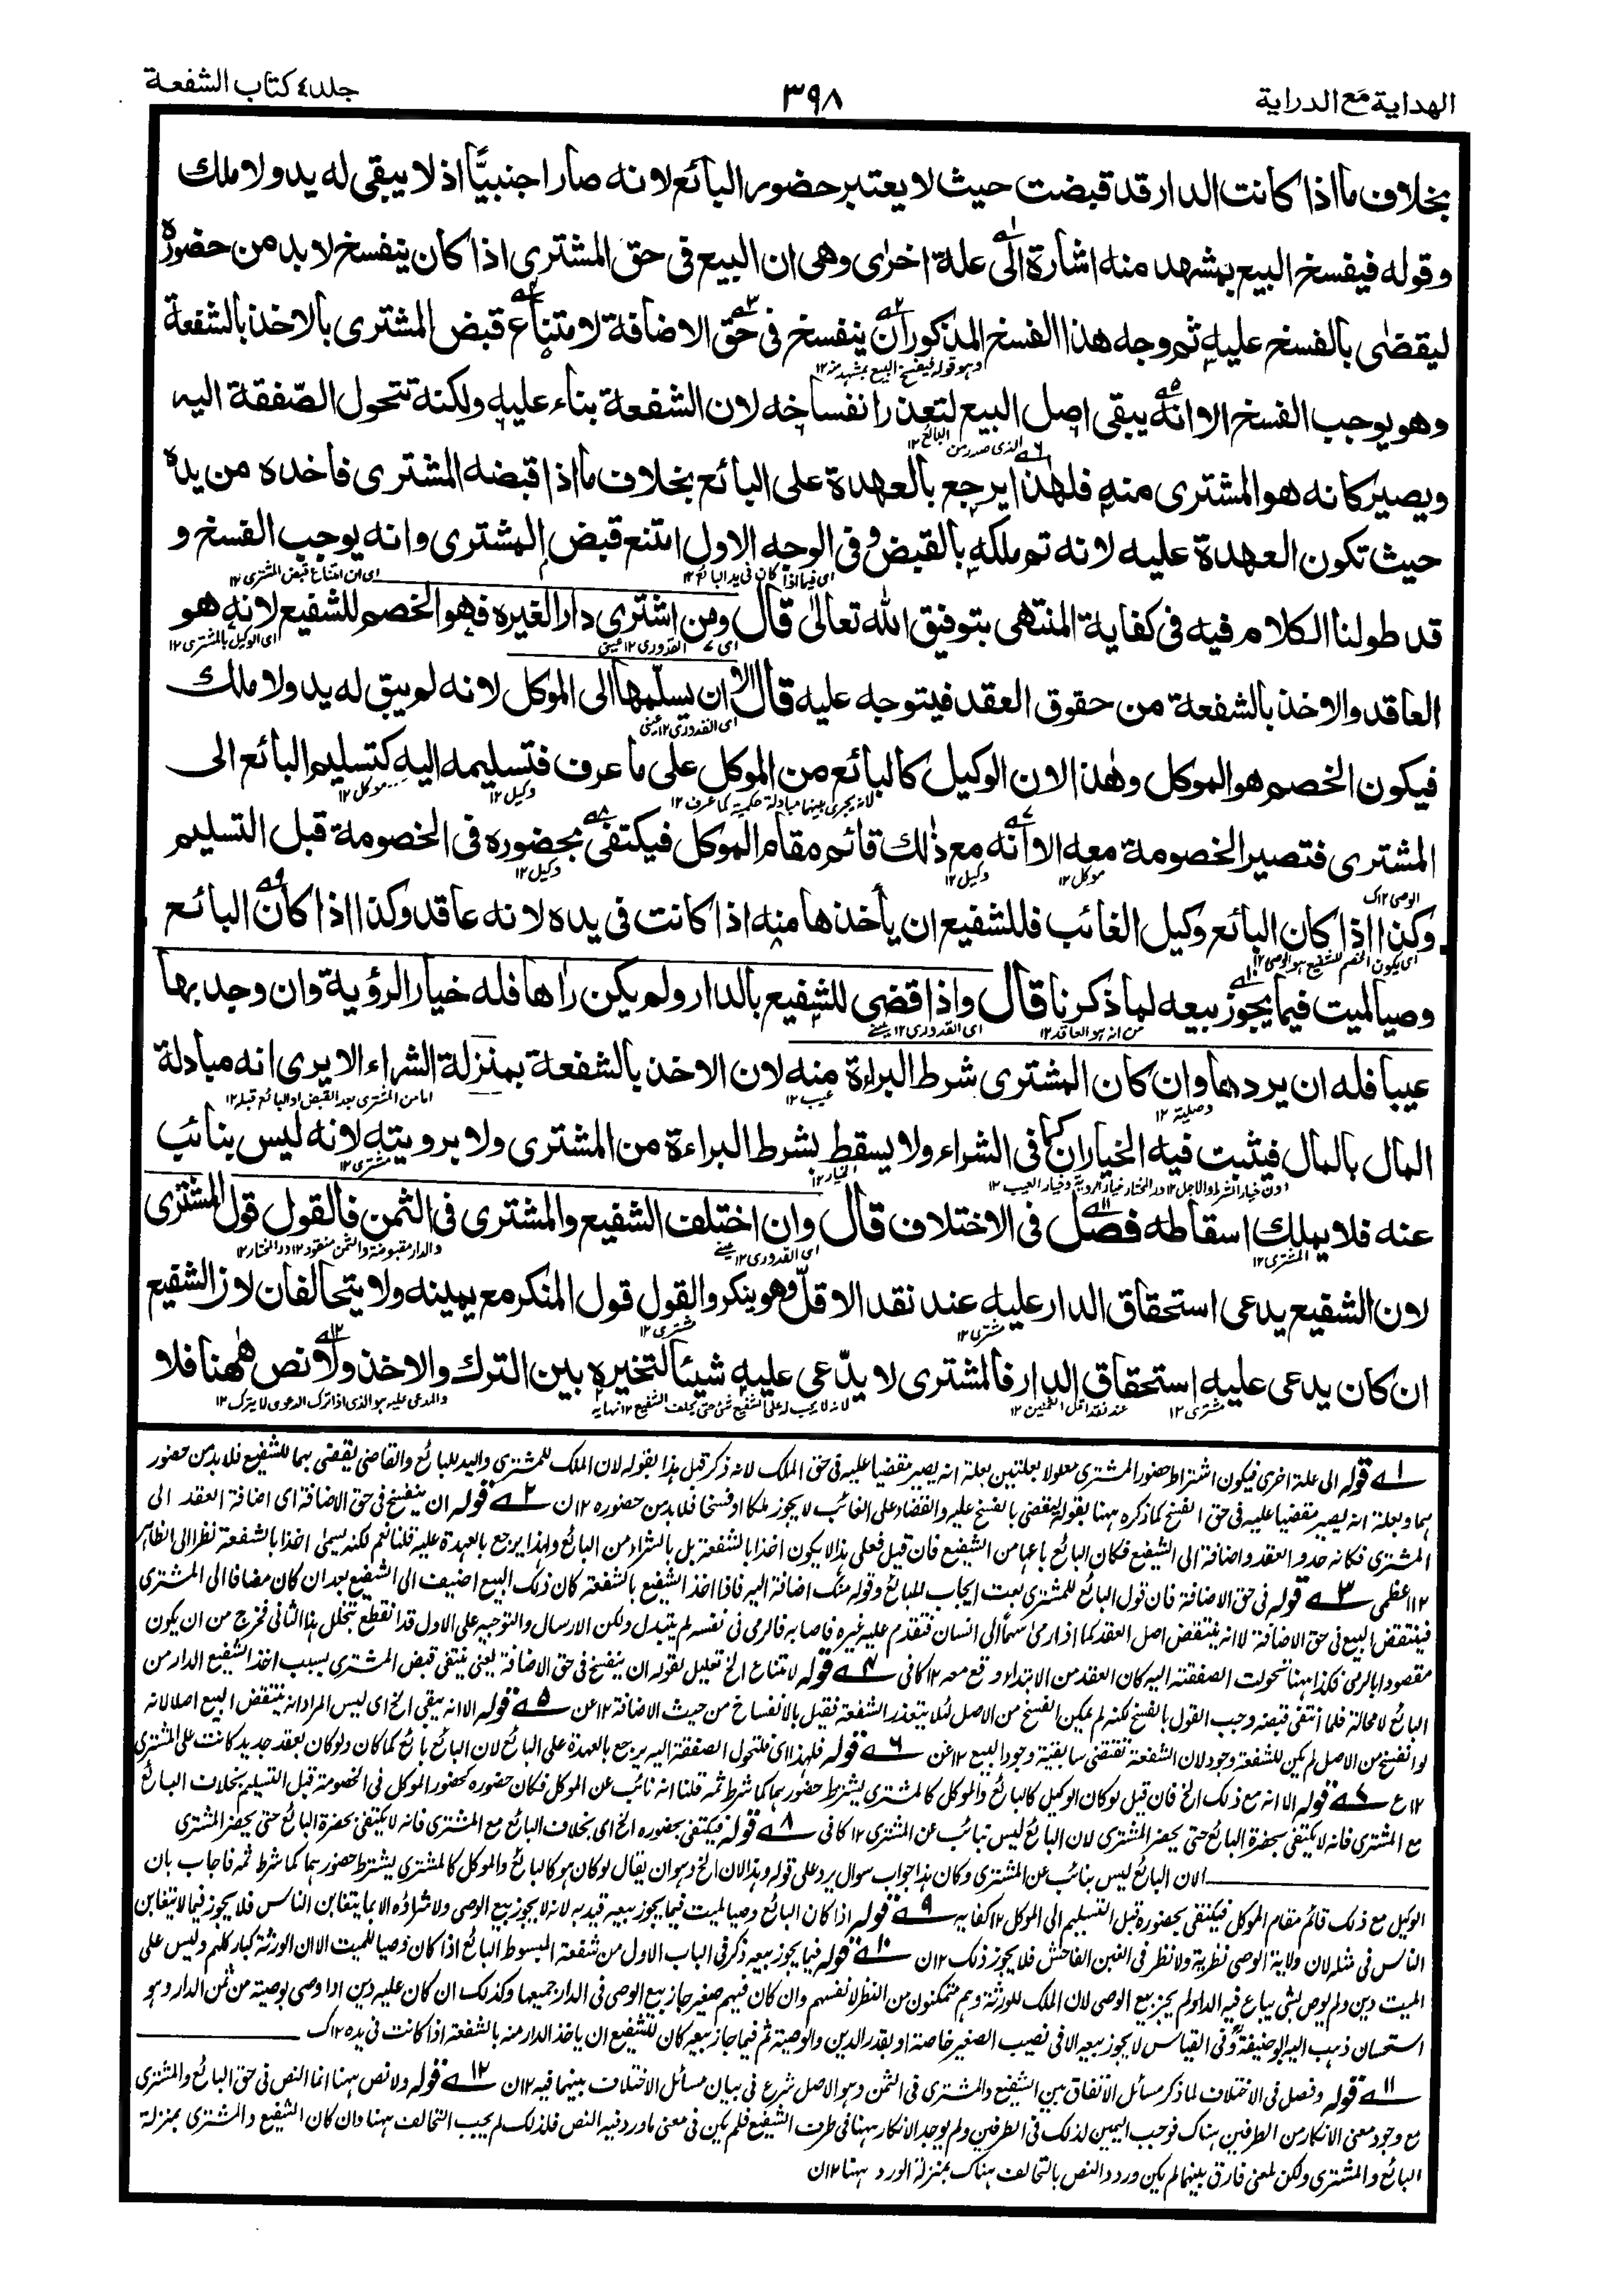 الهداية مع الدراية
٣٩٨
جلد٤ كتاب الشفعة
بخلاف ما اذا كانت الدار قد قبضت حيث لا يعتبر حضور البائع لانه صار اجنبيًّا اذ لا يبقى له يد ولا ملك
وقوله فيفسخ البيع بمشهد منه اشارة الٰى علة اخرٰى وهى ان البيع فى حق المشترى اذا كان ينفسخ لا بد من حضوره
ليقضٰى بالفسخ عليه ثم وجه هذا الفسخ المذكور ان ينفسخ فى حق الاضافة لامتناع قبض المشترى بالاخذ بالشفعة
وهو قوله فيفسخ البيع بمشهد منه ١٢
وهو يوجب الفسخ الا انه يبقى اصل البيع لتعذر انفساخه لان الشفعة بناء عليه ولكنه تتحول الصّفقة اليه
الذى صدر من البائع ١٢
ويصير كانه هو المشترى منه فلهٰذا يرجع بالعهدة على البائع بخلاف ما اذا قبضه المشترى فاخذه من يده
حيث تكون العهدة عليه لانه تم ملكه بالقبض وفى الوجه الاول امتنع قبض المشترى وانه يوجب الفسخ و
اى فيما اذا كان فى يد البائع ١٢
اى ان امتناع قبض المشترى ١٢
قد طولنا الكلام فيه فى كفاية المنتهى بتوفيق الله تعالىٰ قال ومن اشترى دارا لغيره فهو الخصم للشفيع لانه هو
اى القدورى ١٢ عينى
اى الوكيل بالمشترى ١٢
العاقد والاخذ بالشفعة من حقوق العقد فيتوجه عليه قال الا ان يسلّمها الى الموكل لانه لم يبق له يد ولا ملك
اى القدورى ١٢ عينى
فيكون الخصم هو الموكل وهٰذا لان الوكيل كالبائع من الموكل على ما عرف فتسليمه اليه كتسليم البائع الى
لانه يجرى بينهما مبادلة حكمية كما عرف ١٢
وكيل ١٢
موكل ١٢
المشترى فتصير الخصومة معه الا انه مع ذٰلك قائم مقام الموكل فيكتفٰى بحضوره فى الخصومة قبل التسليم
موكل ١٢
وكيل ١٢
وكيل ١٢
الوصى ١٢ ك
وكذا اذا كان البائع وكيل الغائب فللشفيع ان يأخذها منه اذا كانت فى يده لانه عاقد وكذا اذا كان البائع
اى يكون الخصم للشفيع هو الوصى ١٢
وصيا لميت فيما يجوز بيعه لما ذكرنا قال واذا قضى للشفيع بالدار ولم يكن راها فله خيار الرؤية وان وجد بها
من انه هو العاقد ١٢
اى القدورى ١٢ عينى
عيبا فله ان يردها وان كان المشترى شرط البراءة منه لان الاخذ بالشفعة بمنزلة الشراء الا يرى انه مبادلة
وصلية ١٢
عيب ١٢
اما من المشترى بعد القبض او البائع قبله ١٢
المال بالمال فيثبت فيه الخياران كما فى الشراء ولا يسقط بشرط البراءة من المشترى ولا برويته لانه ليس بنائب
دون خيار الشرط والاجل ١٢ در المختار خيار الروية وخيار العيب ١٢
الخيار ١٢
مشترى ١٢
عنه فلا يملك اسقاطه فصل فى الاختلاف قال وان اختلف الشفيع والمشترى فى الثمن فالقول قول المشترى
المشترى ١٢
اى القدورى ١٢ عينى
والدار مقبوضة والثمن منقود ١٢ در المختار ١٢
لان الشفيع يدعى استحقاق الدار عليه عند نقد الاقلّ وهو ينكر والقول قول المنكر مع يمينه ولا يتحالفان لان الشفيع
مشترى ١٢
مشترى ١٢
ان كان يدعى عليه استحقاق الدار فالمشترى لا يدّعى عليه شيئا لتخيره بين الترك والاخذ ولا نص هٰهنا فلا
مشترى ١٢
عند نقد اقل الثمنين ١٢
لانه لا يجب له على الشفيع شئ حتى يحلف الشفيع ١٢ نهايه
والمدعى عليه هو الذى اذا ترك الدعوى لا يترك ١٢
١ قوله الى علة اخرى فيكون اشتراط حضور المشترى معلولا بعلتين بعلة انه يصير مقضيا عليه فى حق الملك لانه ذكر قبل هذا بقوله لان الملك للمشترى واليد للبائع والقاضى يقضى بهما للشفيع فلا بد من حضور
هما وبعلة انه يصير مقضيا عليه فى حق الفسخ كما ذكره ههنا بقوله ليقضى بالفسخ عليه والقضاء على الغائب لا يجوز ملكا او فسخا فلا بد من حضوره ١٢ ن ٢ قوله ان ينفسخ فى حق الاضافة اى اضافة العقد الى
المشترى فكانه جدد العقد واضافة الى الشفيع فكان البائع باعها من الشفيع فان قيل فعلى هذا لا يكون اخذا بالشفعة بل بالشراء من البائع ولهذا يرجع بالعهدة عليه قلنا نعم لكنه يسمى اخذا بالشفعة نظرا الى الظاهر
١٢ اعظمى ٣ قوله فى حق الاضافة فان قول البائع للمشترى بعت ايجاب للبائع وقوله منك اضافة اليه فاذا اخذ الشفيع بالشفعة كان ذلك البيع اضيف الى الشفيع بعد ان كان مضافا الى المشترى
فينتقض البيع فى حق الاضافة لا انه ينتقض اصل العقد كما اذا رمى سهما الى انسان فتقدم عليه غيره فاصابه فالرمى فى نفسه لم يتبدل ولكن الارسال والتوجيه على الاول قد انقطع بتخلل هذا الثانى فخرج من ان يكون
مقصودا بالرمى فكذا ههنا تحولت الصفقة اليه كان العقد من الابتداء وقع معه ١٢ كافى ٤ قوله لامتناع الخ تعليل لقوله ان ينفسخ فى حق الاضافة يعنى ينتفى قبض المشترى بسبب اخذ الشفيع الدار من
البائع لا محالة فلما انتفى قبضه وجب القول بالفسخ لكنه لم يمكن الفسخ من الاصل لئلا يتعذر الشفعة فقيل بالانفساخ من حيث الاضافة ١٢ عن ٥ قوله الا انه يبقى الخ اى ليس المراد انه ينتقض البيع اصلا لانه
لو انفسخ من الاصل لم يكن للشفعة وجود لان الشفعة تقتضى سابقية وجود البيع ١٢ عن ٦ قوله فلهذا اى فلتحول الصفقة اليه يرجع بالعهدة على البائع لان البائع بائع لما كان ولو كان بعقد جديد كانت على المشترى
١٢ ع ٧ قوله الا انه مع ذلك الخ فان قيل لو كان الوكيل كالبائع والموكل كالمشترى يشترط حضورهما كما شرط ثمه قلنا انه نائب عن الموكل فكان حضوره كحضور الموكل فى الخصومة قبل التسليم بخلاف البائع
مع المشترى فانه لا يكتفى بحضرة البائع حتى يحضر المشترى لان البائع ليس بنائب عن المشترى ١٢ كافى ٨ قوله فيكتفى بحضوره الخ اى بخلاف البائع مع المشترى فانه لا يكتفى بحضرة البائع حتى يحضر المشترى
لان البائع ليس بنائب عن المشترى وكان هذا جواب سوال يرد على قوله وهذا لان الخ وهو ان يقال لو كان هو كالبائع والموكل كالمشترى يشترط حضورهما كما شرط ثمه فاجاب بان
الوكيل مع ذلك قائم مقام الموكل فيكتفى بحضوره قبل التسليم الى الموكل ١٢ كفايه ٩ قوله اذا كان البائع وصيا لميت فيما يجوز بيعه قيد به لانه لا يجوز بيع الوصى ولا شراؤه الا بما يتغابن الناس فلا يجوز فيما لا يتغابن
الناس فى مثله لان ولاية الوصى نظرية ولا نظر فى الغبن الفاحش فلا يجوز ذلك ١٢ ن ١٠ قوله فيما يجوز بيعه ذكر فى الباب الاول من شفعة المبسوط البائع اذا كان وصيا للميت الا ان الورثة كبار كلهم وليس على
الميت دين ولم يوص بشئ يباع فيه الدار لم يجز بيع الوصى لان الملك للورثة وهم متمكنون من النظر لانفسهم وان كان فيهم صغير جاز بيع الوصى فى الدار جميعها وكذلك ان كان عليه دين او اوصى بوصية من ثمن الدار وهو
استحسان ذهب اليه ابو حنيفة وفى القياس لا يجوز بيعه الا فى نصيب الصغير خاصة او بقدر الدين والوصية ثم فيما جاز بيعه كان للشفيع ان ياخذ الدار منه بالشفعة اذا كانت فى يده ١٢ ك
١١ قوله وفصل فى الاختلاف لما ذكر مسائل الاتفاق بين الشفيع والمشترى فى الثمن وهو الاصل شرع فى بيان مسائل الاختلاف بينهما فيه ١٢ ن ١٢ قوله ولا نص ههنا انما النص فى حق البائع والمشترى
مع وجود معنى الانكار من الطرفين هناك فوجب اليمين لذلك فى الطرفين ولم يوجد الانكار ههنا فى طرف الشفيع فلم يكن فى معنى ما ورد فيه النص فلذلك لم يجب التحالف ههنا وان كان الشفيع والمشترى بمنزلة
البائع والمشترى ولكن لمعنى فارق بينهما لم يكن ورود النص بالتحالف هناك بمنزلة الورود ههنا ١٢ ن